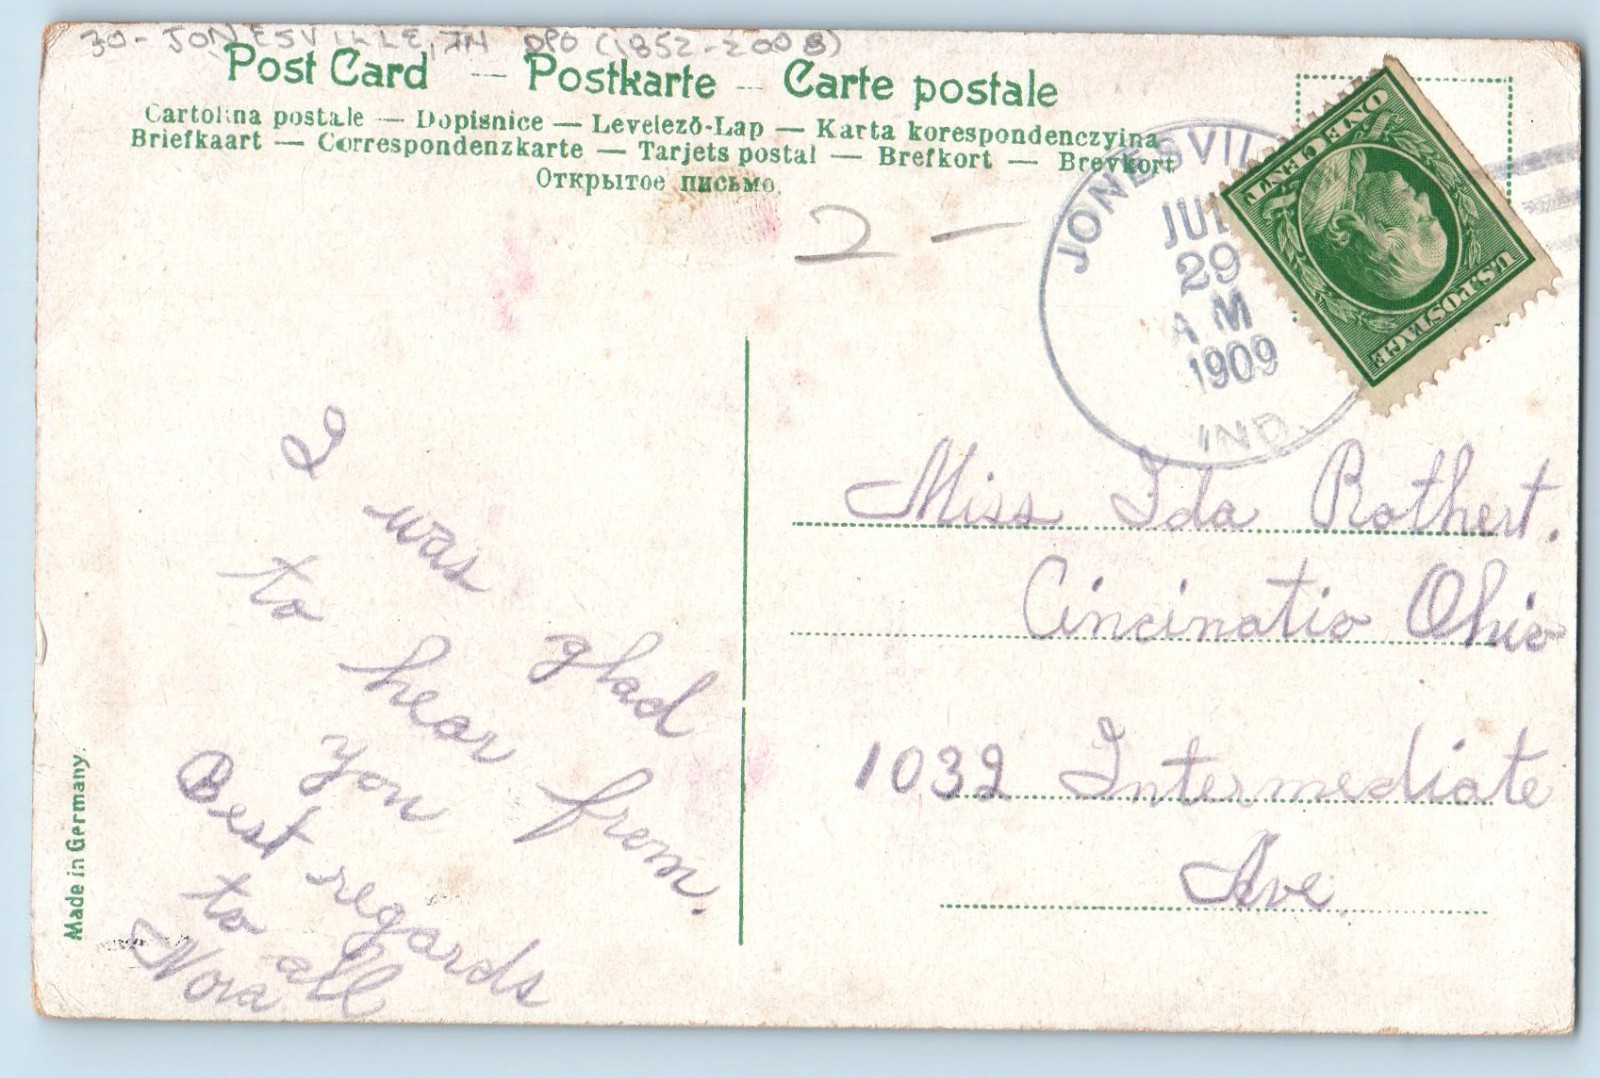 30 - JONESVILLE, IN DPO (1852-2008)
Post Card — Postkarte — Carte postale
Cartolina postale — Dopisnice — Levelező-Lap — Karta korespondenczyina
Briefkaart — Correspondenzkarte — Tarjets postal — Brefkort — Brevkort
Открытое письмо.
2 -
JONESVIL
JUL
29
AM
1909
IND.
ONE CENT
U.S. POSTAGE
I
was glad
to hear from
you.
Best regards
to all
Nora
Miss Ida Rothert.
Cincinatio Ohio
1032 Intermediate
Ave.
Made in Germany.